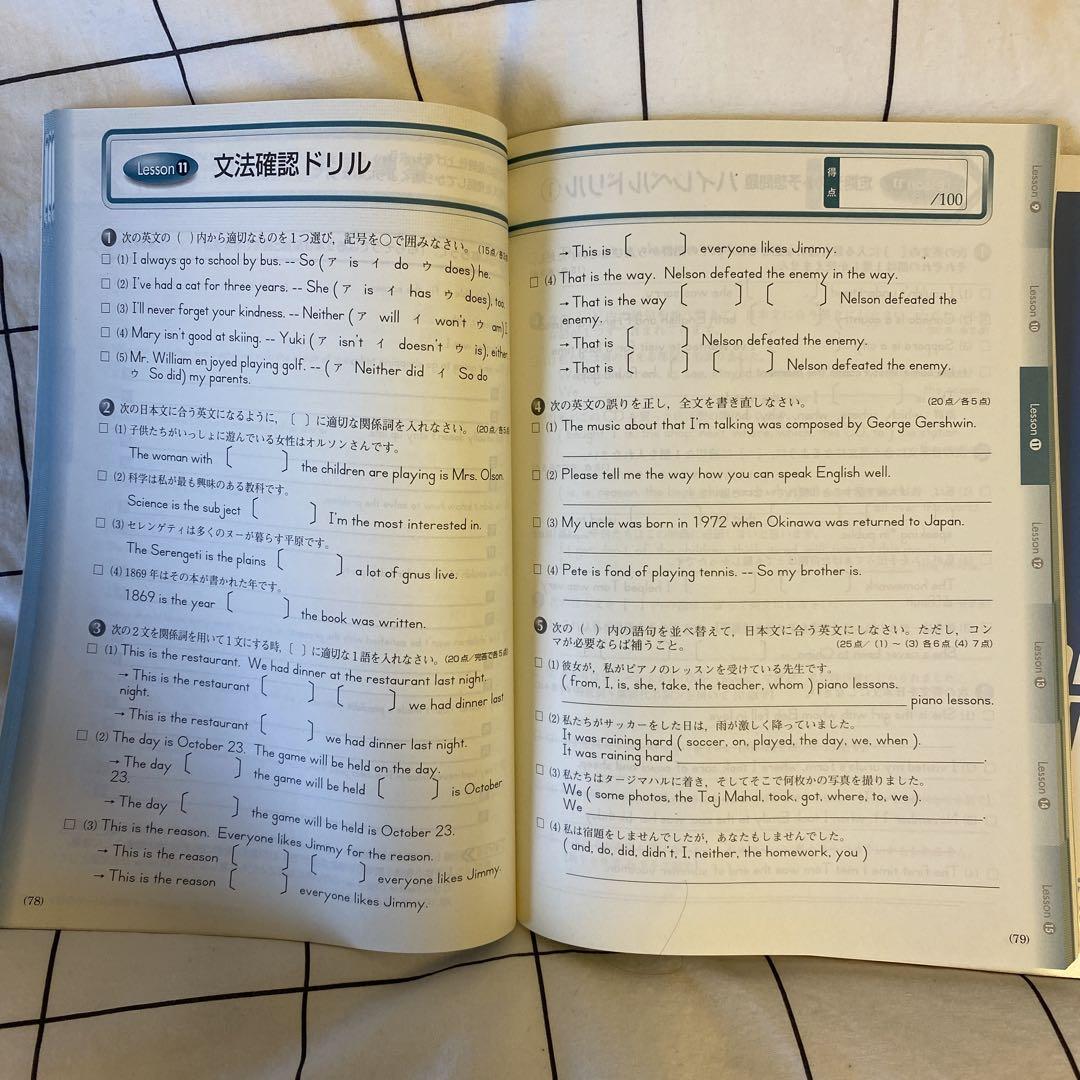 Lesson 11 文法確認ドリル
1 次の英文の( )内から適切なものを1つ選び,記号を○で囲みなさい。(15点/各3点
□ (1) I always go to school by bus. -- So ( ア is イ do ウ does) he.
□ (2) I've had a cat for three years. -- She ( ア is イ has ウ does), too.
□ (3) I'll never forget your kindness. -- Neither ( ア will イ won't ウ am) I
□ (4) Mary isn't good at skiing. -- Yuki ( ア isn't イ doesn't ウ is), either
□ (5) Mr. William enjoyed playing golf. -- ( ア Neither did イ So do
ウ So did) my parents.
2 次の日本文に合う英文になるように,〔 〕に適切な関係詞を入れなさい。(20点/各5点
□ (1) 子供たちがいっしょに遊んでいる女性はオルソンさんです。
The woman with 〔 〕 the children are playing is Mrs. Olson.
□ (2) 科学は私が最も興味のある教科です。
Science is the subject 〔 〕 I'm the most interested in.
□ (3) セレンゲティは多くのヌーが暮らす平原です。
The Serengeti is the plains 〔 〕 a lot of gnus live.
□ (4) 1869年はその本が書かれた年です。
1869 is the year 〔 〕 the book was written.
3 次の2文を関係詞を用いて1文にする時,〔 〕に適切な1語を入れなさい。(20点/完答で各5点)
□ (1) This is the restaurant. We had dinner at the restaurant last night.
→ This is the restaurant 〔 〕 〔 〕 we had dinner last
night.
→ This is the restaurant 〔 〕 we had dinner last night.
□ (2) The day is October 23. The game will be held on the day.
→ The day 〔 〕 the game will be held 〔 〕 is October
23.
→ The day 〔 〕 the game will be held is October 23.
□ (3) This is the reason. Everyone likes Jimmy for the reason.
→ This is the reason 〔 〕 〔 〕 everyone likes Jimmy.
→ This is the reason 〔 〕 everyone likes Jimmy.
(78)
得点 /100
→ This is 〔 〕 everyone likes Jimmy.
□ (4) That is the way. Nelson defeated the enemy in the way.
→ That is the way 〔 〕 〔 〕 Nelson defeated the
enemy.
→ That is 〔 〕 Nelson defeated the enemy.
→ That is 〔 〕 〔 〕 Nelson defeated the enemy.
4 次の英文の誤りを正し,全文を書き直しなさい。 (20点/各5点)
□ (1) The music about that I'm talking was composed by George Gershwin.
□ (2) Please tell me the way how you can speak English well.
□ (3) My uncle was born in 1972 when Okinawa was returned to Japan.
□ (4) Pete is fond of playing tennis. -- So my brother is.
5 次の( )内の語句を並べ替えて,日本文に合う英文にしなさい。ただし,コン
マが必要ならば補うこと。 (25点/(1)〜(3)各6点(4)7点)
□ (1) 彼女が,私がピアノのレッスンを受けている先生です。
( from, I, is, she, take, the teacher, whom ) piano lessons.
piano lessons.
□ (2) 私たちがサッカーをした日は,雨が激しく降っていました。
It was raining hard ( soccer, on, played, the day, we, when ).
It was raining hard .
□ (3) 私たちはタージマハルに着き,そしてそこで何枚かの写真を撮りました。
We ( some photos, the Taj Mahal, took, got, where, to, we ).
We .
□ (4) 私は宿題をしませんでしたが,あなたもしませんでした。
( and, do, did, didn't, I, neither, the homework, you )
(79)
Lesson 9
Lesson 10
Lesson 11
Lesson 12
Lesson 13
Lesson 14
Lesson 15